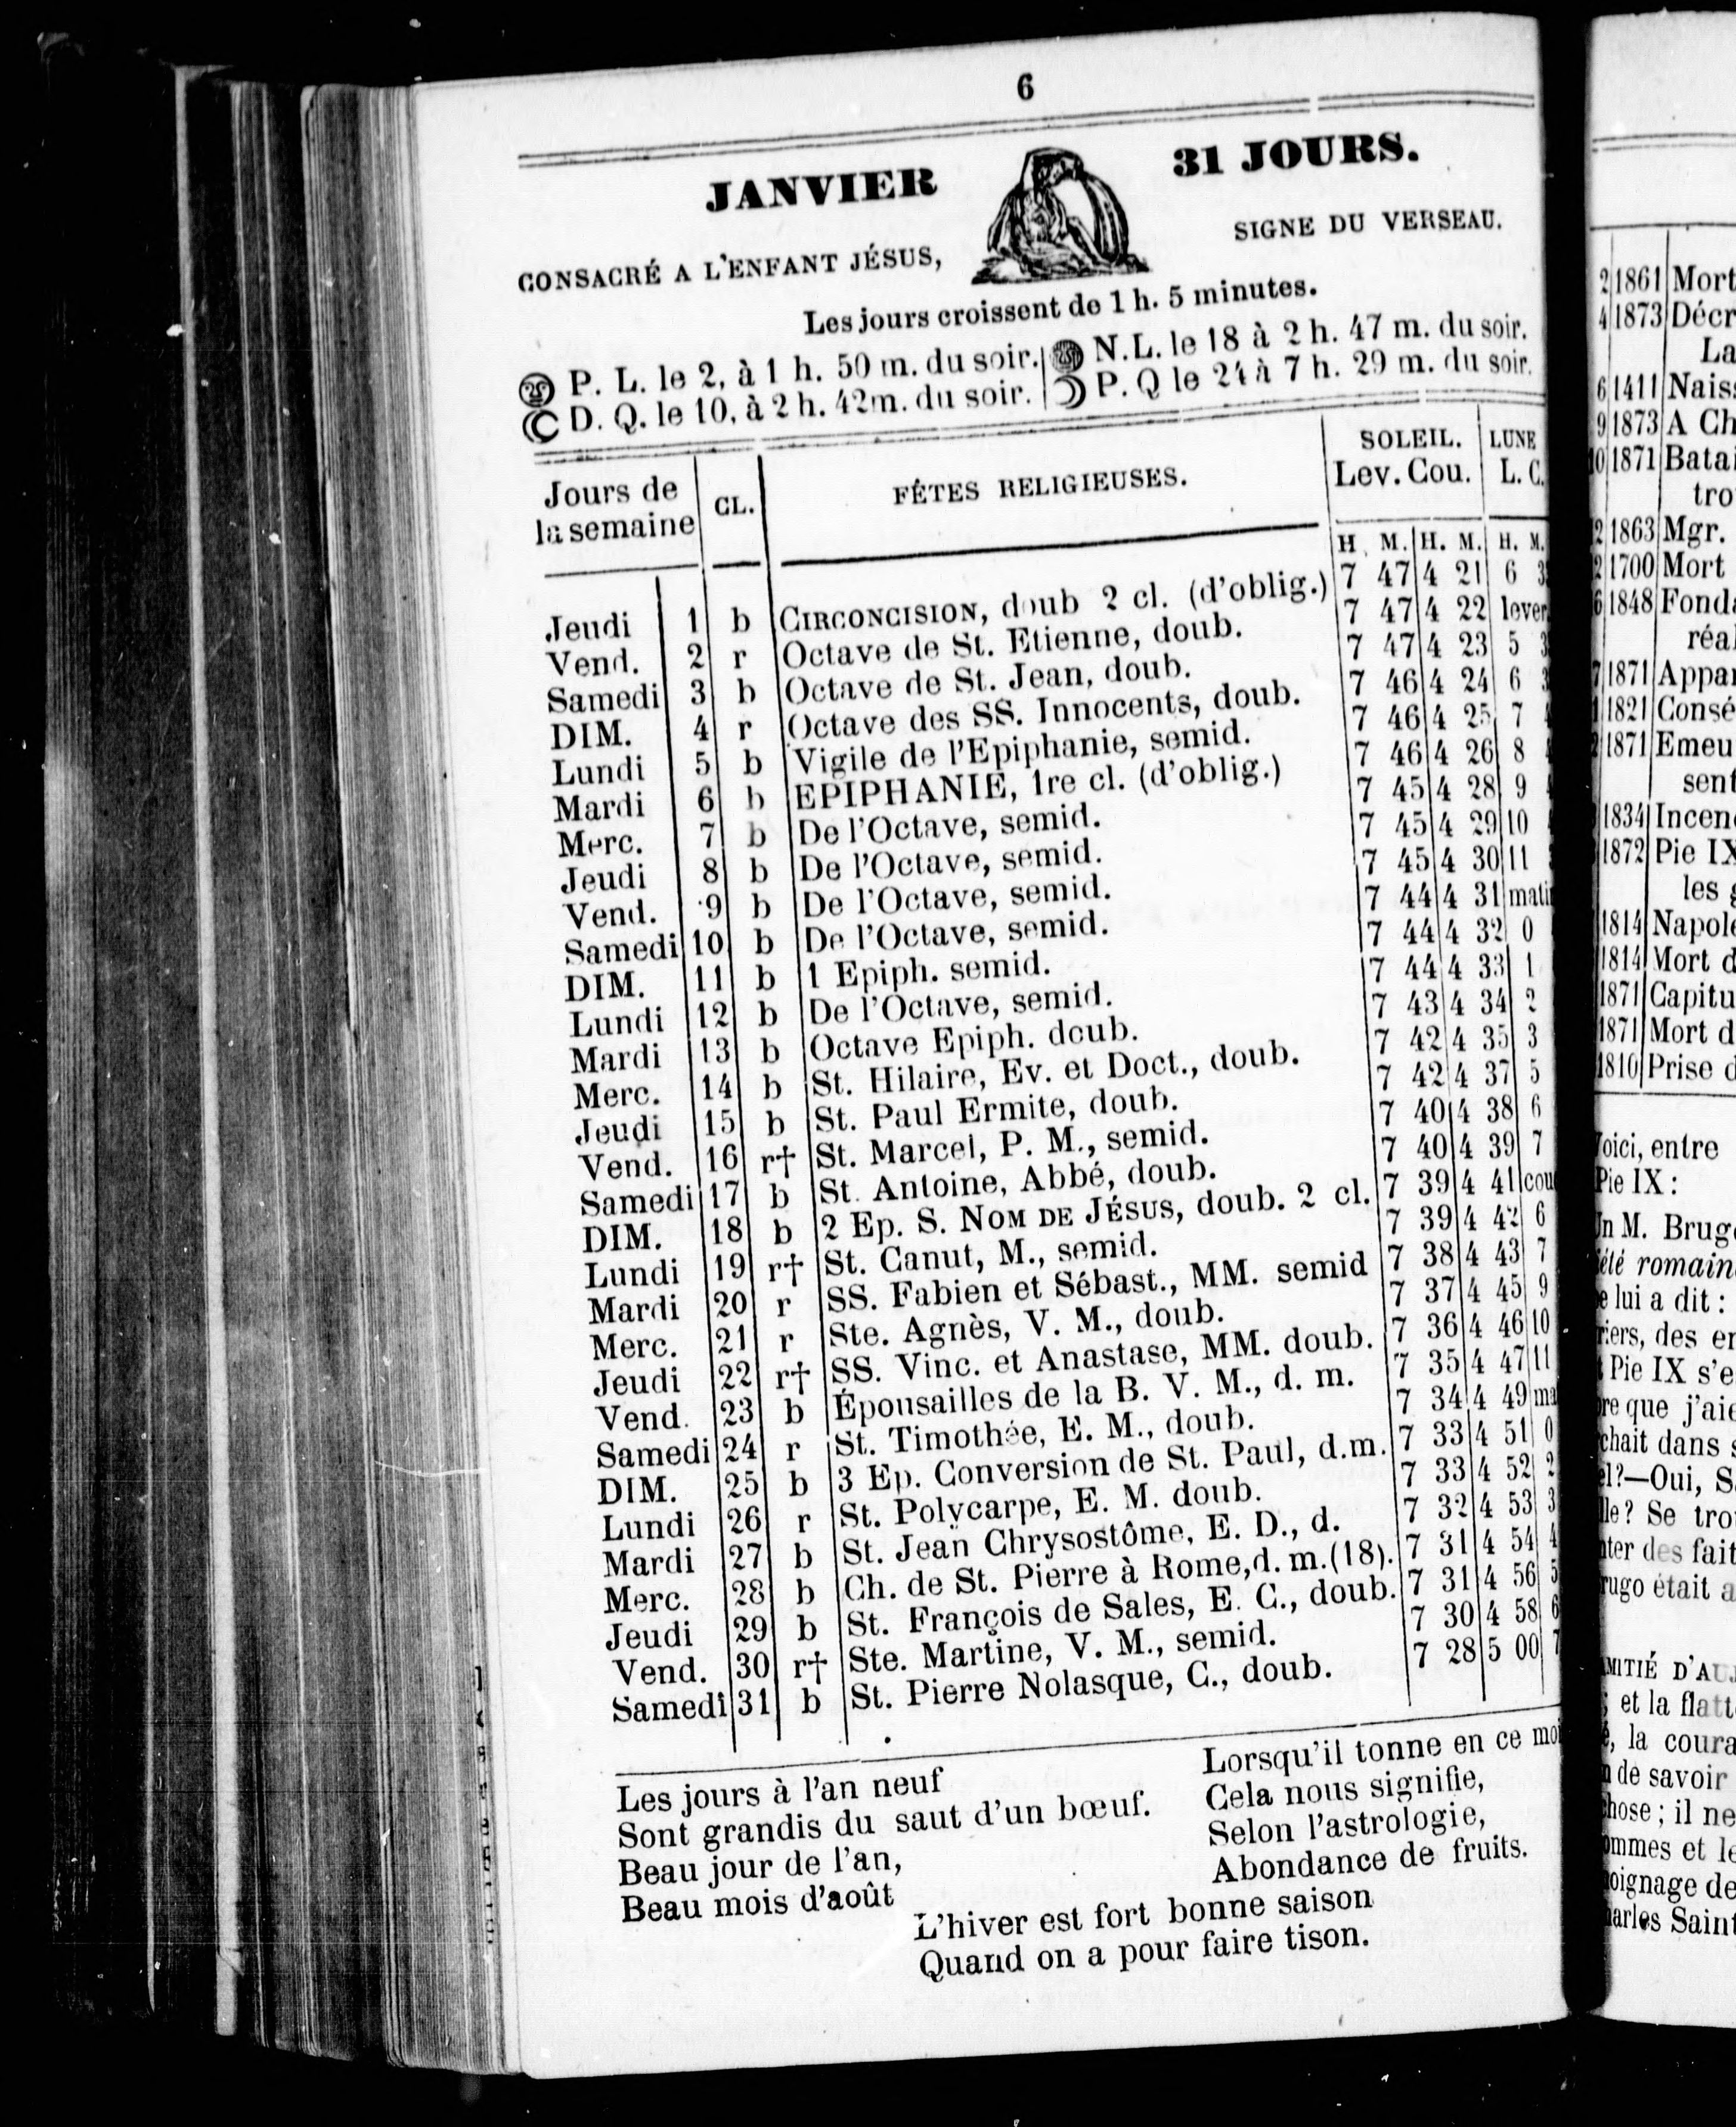 6
JANVIER 31 JOURS.
CONSACRÉ A L'ENFANT JÉSUS, SIGNE DU VERSEAU.
Les jours croissent de 1 h. 5 minutes.
P. L. le 2, à 1 h. 50 m. du soir. N.L. le 18 à 2 h. 47 m. du soir.
D. Q. le 10, à 2 h. 42m. du soir. P. Q le 24 à 7 h. 29 m. du soir.
Jours de la semaine CL. FÊTES RELIGIEUSES. SOLEIL. Lev. Cou. LUNE L. C.
H. M. H. M. H. M.
Jeudi 1 b CIRCONCISION, doub 2 cl. (d'oblig.) 7 47 4 21 6
Vend. 2 r Octave de St. Etienne, doub. 7 47 4 22 lever
Samedi 3 b Octave de St. Jean, doub. 7 47 4 23 5
DIM. 4 r Octave des SS. Innocents, doub. 7 46 4 24 6
Lundi 5 b Vigile de l'Epiphanie, semid. 7 46 4 25 7
Mardi 6 b EPIPHANIE, 1re cl. (d'oblig.) 7 46 4 26 8
Merc. 7 b De l'Octave, semid. 7 45 4 28 9
Jeudi 8 b De l'Octave, semid. 7 45 4 29 10
Vend. 9 b De l'Octave, semid. 7 45 4 30 11
Samedi 10 b De l'Octave, semid. 7 44 4 31
DIM. 11 b 1 Epiph. semid. 7 44 4 32 0
Lundi 12 b De l'Octave, semid. 7 44 4 33 1
Mardi 13 b Octave Epiph. doub. 7 43 4 34 2
Merc. 14 b St. Hilaire, Ev. et Doct., doub. 7 42 4 35 3
Jeudi 15 b St. Paul Ermite, doub. 7 42 4 37 5
Vend. 16 r† St. Marcel, P. M., semid. 7 40 4 38 6
Samedi 17 b St. Antoine, Abbé, doub. 7 40 4 39 7
DIM. 18 b 2 Ep. S. NOM DE JÉSUS, doub. 2 cl. 7 39 4 41
Lundi 19 r† St. Canut, M., semid. 7 39 4 42 6
Mardi 20 r SS. Fabien et Sébast., MM. semid 7 38 4 43 7
Merc. 21 r Ste. Agnès, V. M., doub. 7 37 4 45 9
Jeudi 22 r† SS. Vinc. et Anastase, MM. doub. 7 36 4 46 10
Vend. 23 b Épousailles de la B. V. M., d. m. 7 35 4 47 11
Samedi 24 r St. Timothée, E. M., doub. 7 34 4 49
DIM. 25 b 3 Ep. Conversion de St. Paul, d.m. 7 33 4 51 0
Lundi 26 r St. Polycarpe, E. M. doub. 7 33 4 52 2
Mardi 27 b St. Jean Chrysostôme, E. D., d. 7 32 4 53 3
Merc. 28 b Ch. de St. Pierre à Rome,d. m.(18). 7 31 4 54 4
Jeudi 29 b St. François de Sales, E. C., doub. 7 31 4 56 5
Vend. 30 r† Ste. Martine, V. M., semid. 7 30 4 58 6
Samedi 31 b St. Pierre Nolasque, C., doub. 7 28 5 00 7
Les jours à l'an neuf
Sont grandis du saut d'un bœuf.
Beau jour de l'an,
Beau mois d'août
Lorsqu'il tonne en ce
Cela nous signifie,
Selon l'astrologie,
Abondance de fruits.
L'hiver est fort bonne saison
Quand on a pour faire tison.
2 1861 Mort
4 1873
La
6 1411
9 1873 A
1871
1863 Mgr.
1700 Mort
1848
1871
1821
1871
1834
1872 Pie IX
les
1814
1814 Mort
1871
1871 Mort
1810 Prise
entre
Pie IX :
M.
lui a dit :
des
Pie IX
que j'aie
dans
—Oui,
? Se
des
était
D'
et la
la
de savoir
; il ne
et
de